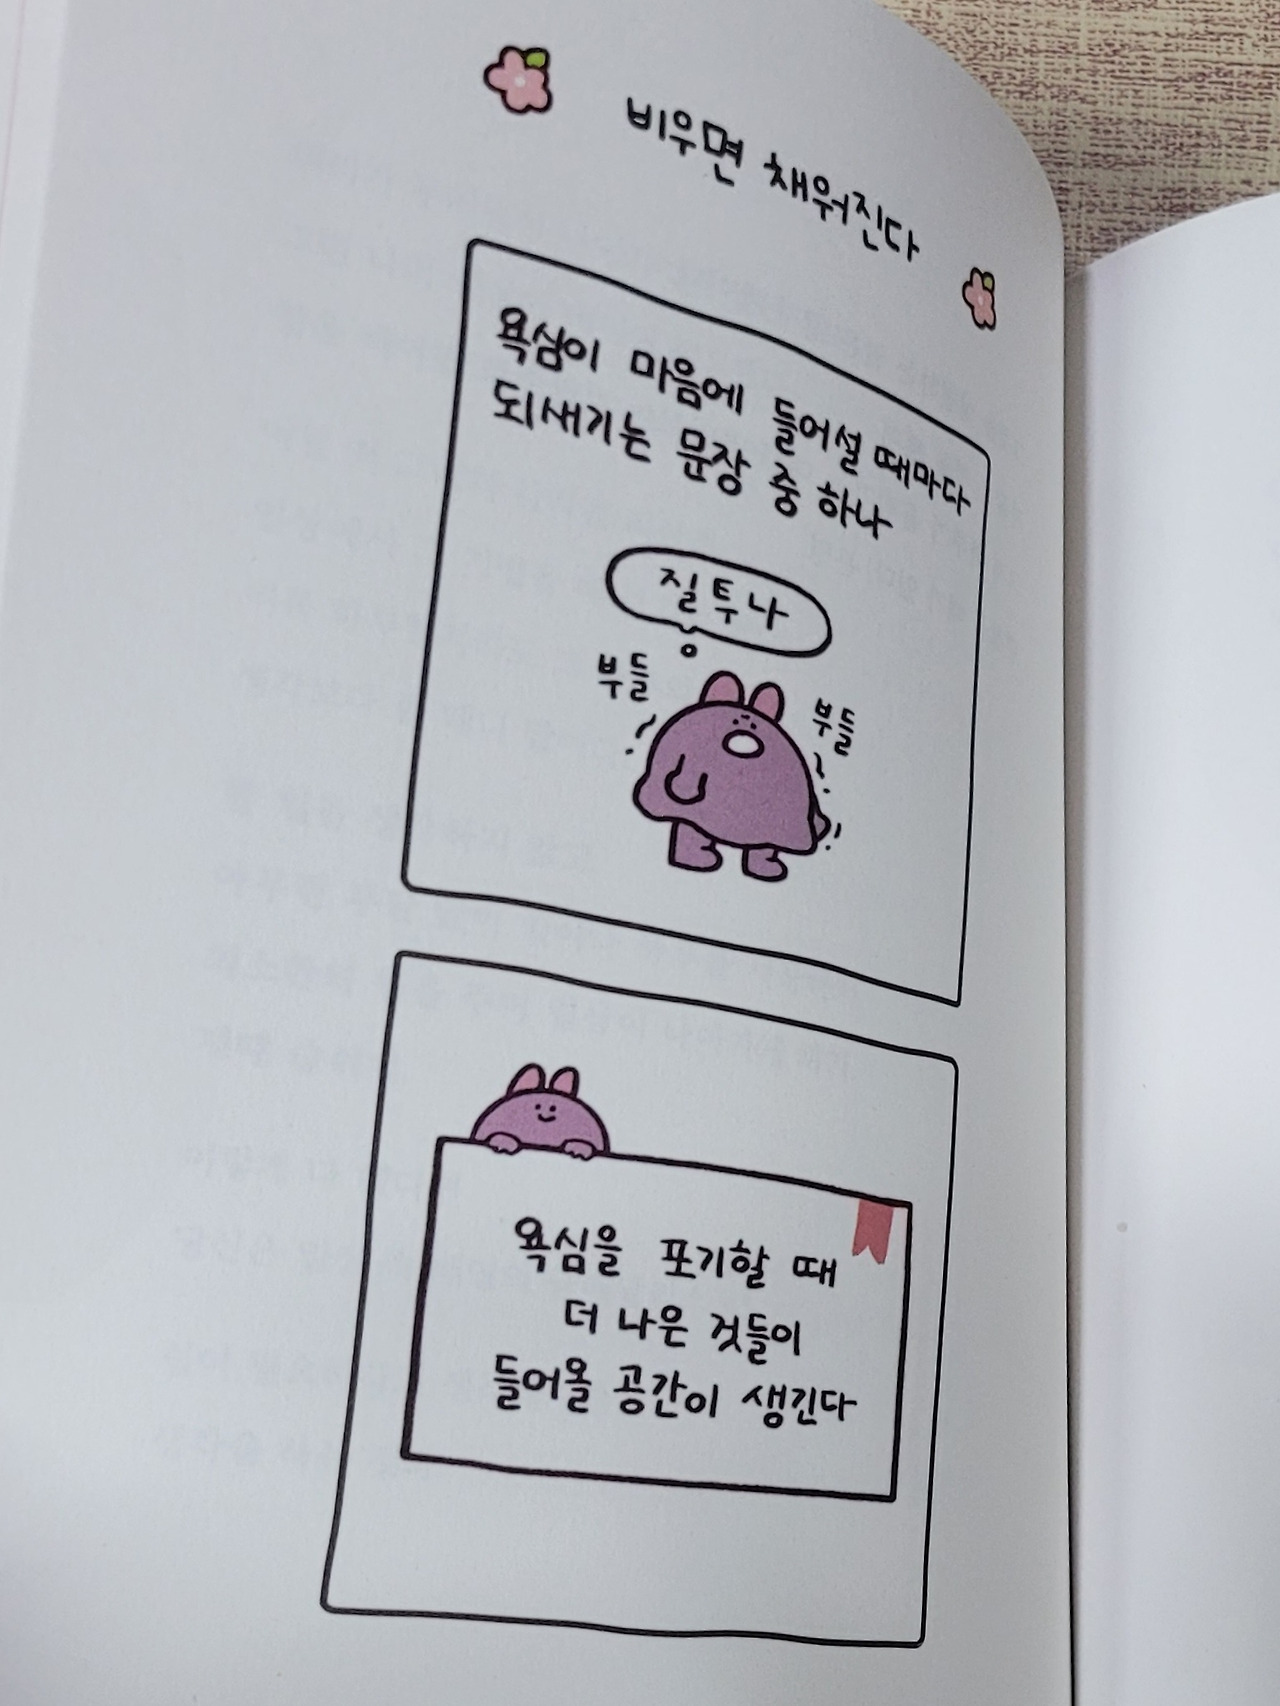 비우면 채워진다
욕심이 마음에 들어설 때마다
되새기는 문장 중 하나
질투나
부들
부들
욕심을 포기할 때
더 나은 것들이
들어올 공간이 생긴다